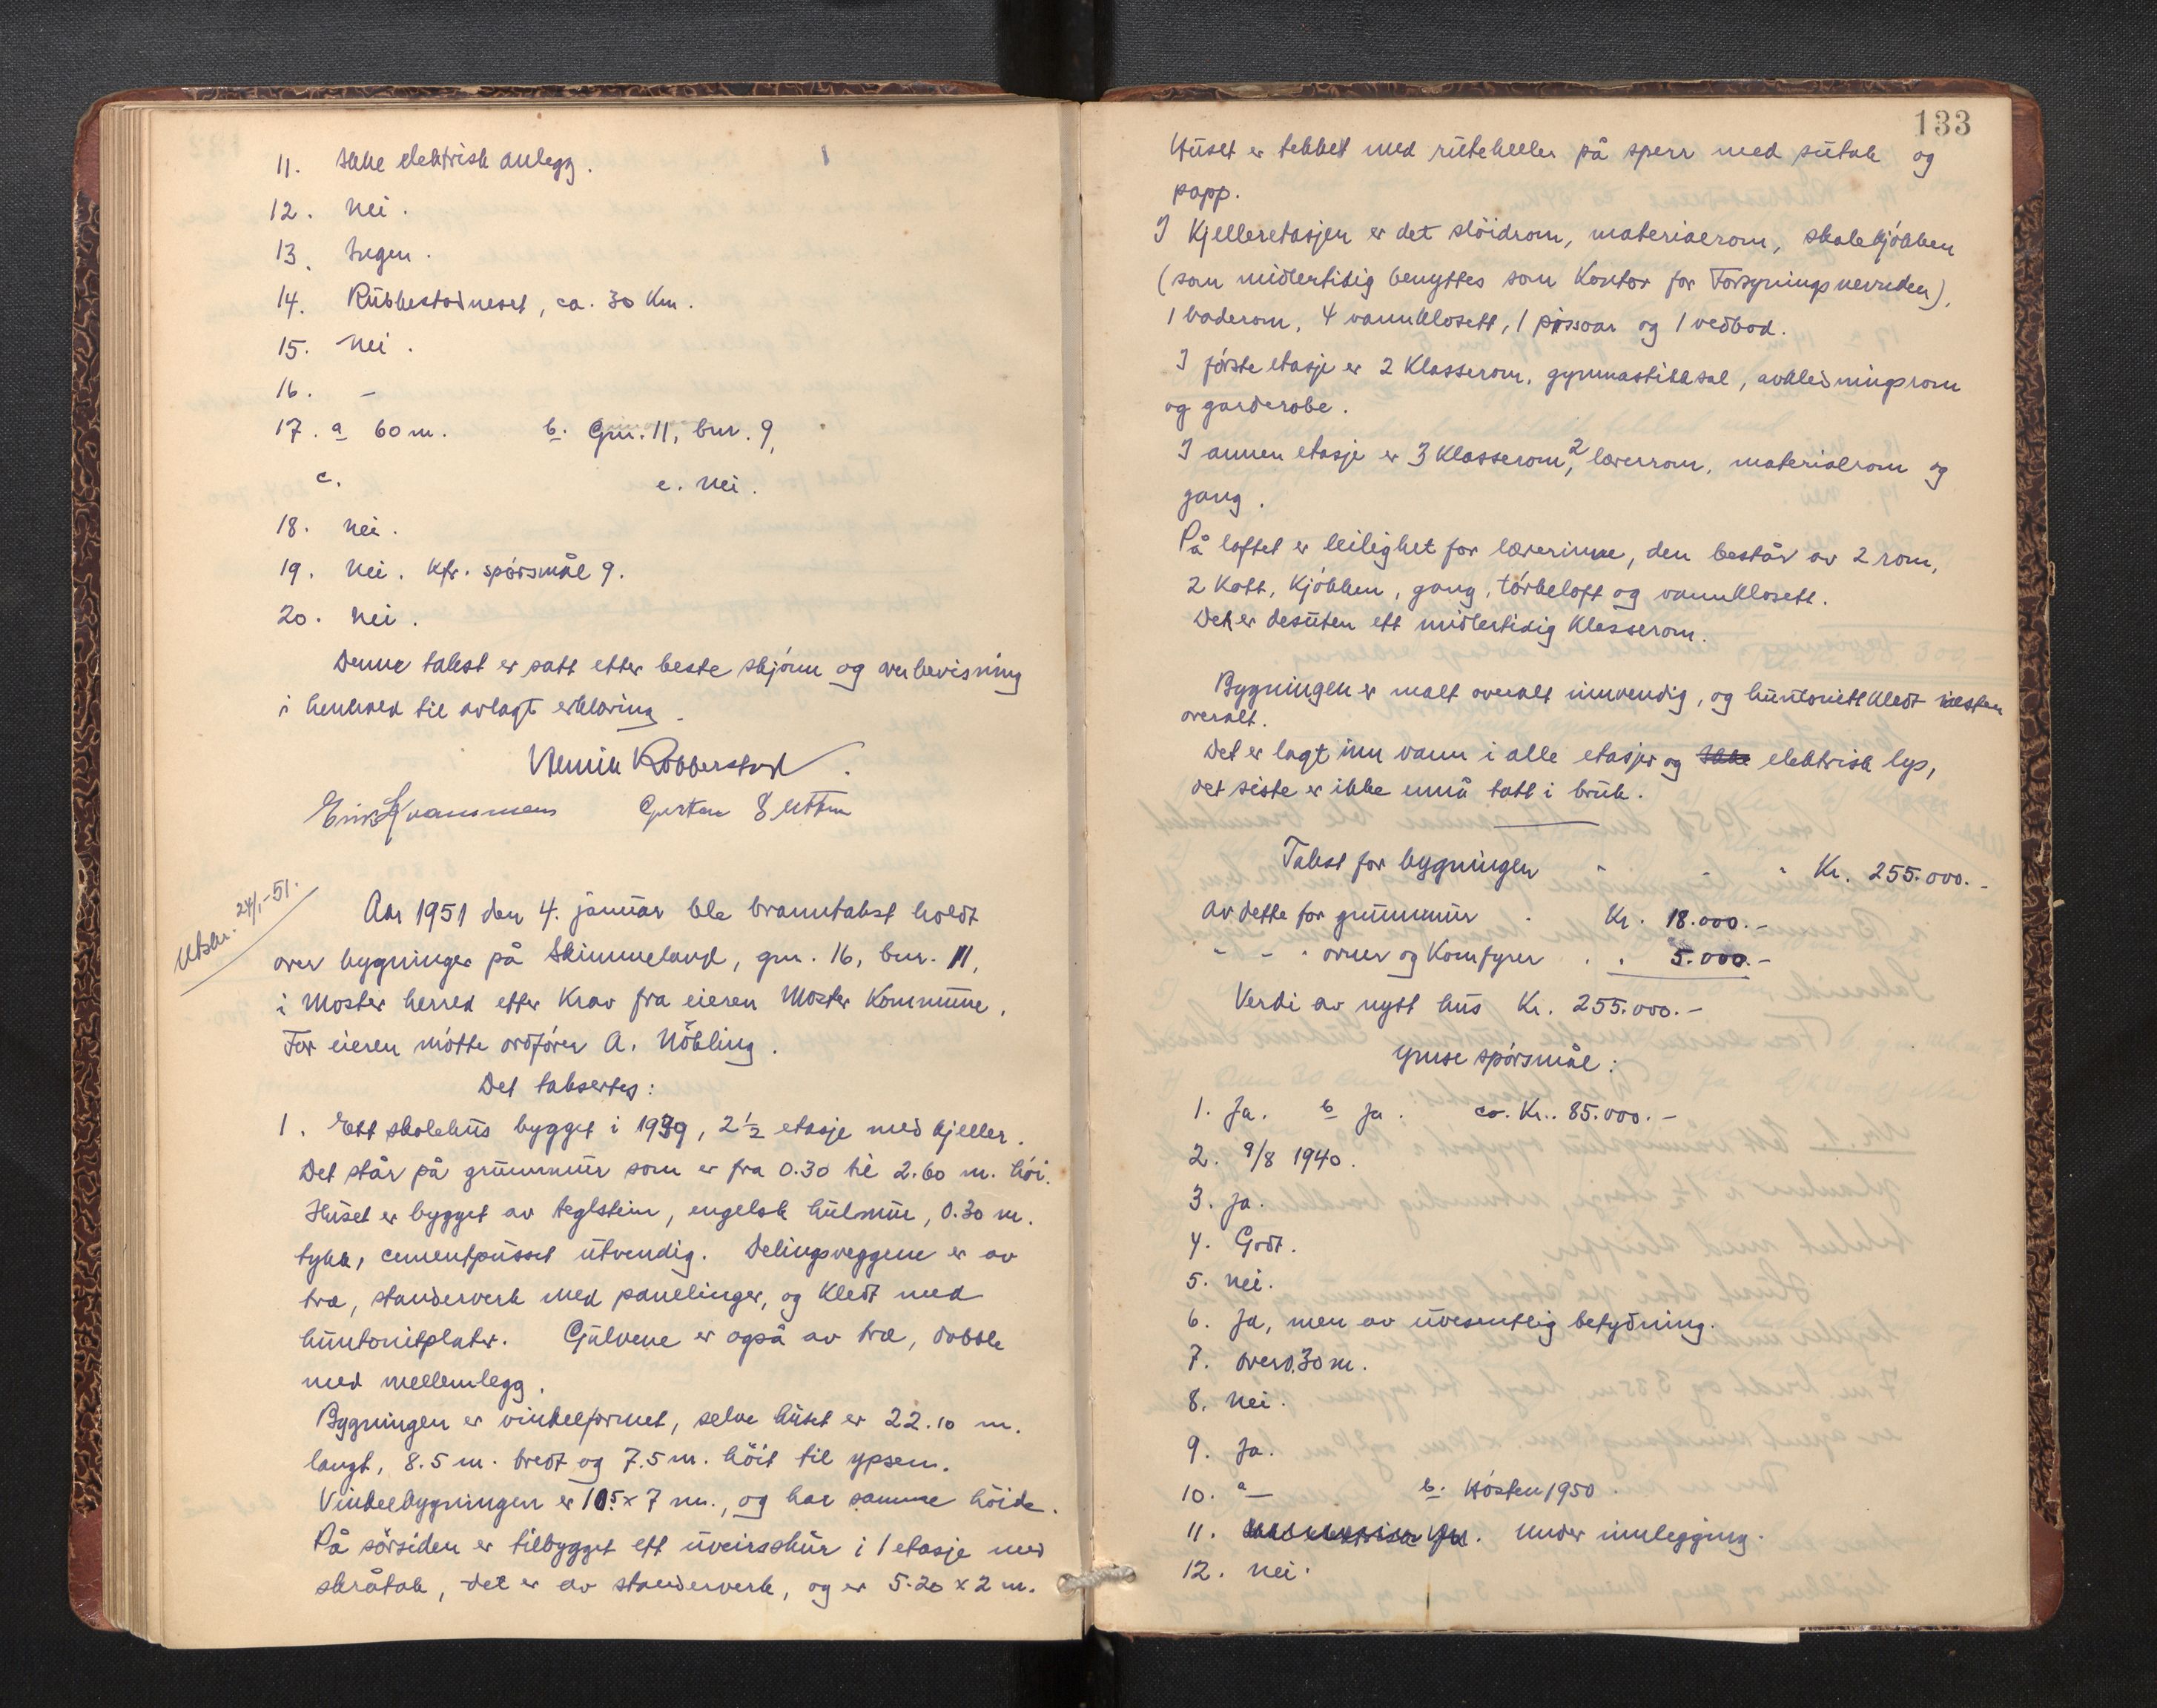 11. Ikke elektrisk anlegg.
12. Nei.
13. Ingen.
14. Rubbestadneset, ca. 30 Km.
15. Nei.
16. –
17. a 60 m. b. Gnr. 11, bnr. 9,
c. e. Nei.
18. Nei.
19. Nei. Kfr. spørsmål 9.
20. Nei.
Denne takst er satt etter beste skjønn og overbevisning
i henhold til avlagt erklæring.
Henrik Robberstad.
Erik Kvarnmen Gustav
Utskr. 24/1-51.
Aar 1951 den 4. januar ble branntakst holdt
over bygninger på Skimmeland, gnr. 16, bnr. 11,
i Moster herred etter Krav fra eieren Moster Kommune.
For eieren møtte ordfører A. Nökling.
Det takseres:
1. Ett skolehus bygget i 1939, 2 1/2 etasje med kjeller.
Det står på grunnmur som er fra 0.30 til 2.60 m. høi.
Huset er bygget av teglstein, engelsk hulmur, 0.30 m.
tykk, cementpusset utvendig. Delingsveggene er av
tre, standerverk med panelinger, og Kledt med
huntonitplater. Gulvene er også av tre, doble
med mellemlegg.
Bygningen er vinkelformet, selve huset er 22.10 m.
langt, 8.5 m. bredt og 7.5 m. höit til ypsem.
Vinkelbygningen er 10.5 x 7 m., og har samme höide.
På sörsiden er tilbygget ett uveirsskur i 1 etasje med
skråtak, det er av standerverk, og er 5.20 x 2 m.
133
Huset er tekket med ruteheller på sperr med sutak og
papp.
I Kjelleretasjen er det slöidrom, materialrom, skolekjøkken
(som midlertidig benyttes som Kontor for Forsyningsnevnden),
1 baderom, 4 vannklosett, 1 pissoar og 1 vedbod.
I første etasje er 2 Klasserom, gymnastikksal, avkledningsrom
og garderobe.
I annen etasje er 3 Klasserom, 2 lærerrom, materialrom og
gang.
På loftet er leilighet for lærerinne, den består av 2 rom,
2 Kott, Kjøkken, gang, tørkeloft og vannklosett.
Det er desuten ett midlertidig Klasserom.
Bygningen er malt overalt innvendig, og huntonittkledt nesten
overalt.
Det er lagt inn vann i alle etasjer og ikke elektrisk lys,
det siste er ikke ennå tatt i bruk.
Takst for bygningen - - - Kr. 255.000.-
Av dette for grunnmur . Kr. 18.000.-
- - - ovner og Komfyrer . . 5.000.-
Verdi av nytt hus Kr. 255.000.-
Ymse spørsmål:
1. Ja. b Ja. ca. Kr. 85.000.-
2. 9/8 1940.
3. Ja.
4. Godt.
5. Nei.
6. Ja, men av uvesentlig betydning.
7. Over 0,30 m.
8. Nei.
9. Ja.
10. a — b. Høsten 1950.
11. Under innlegging.
12. Nei.